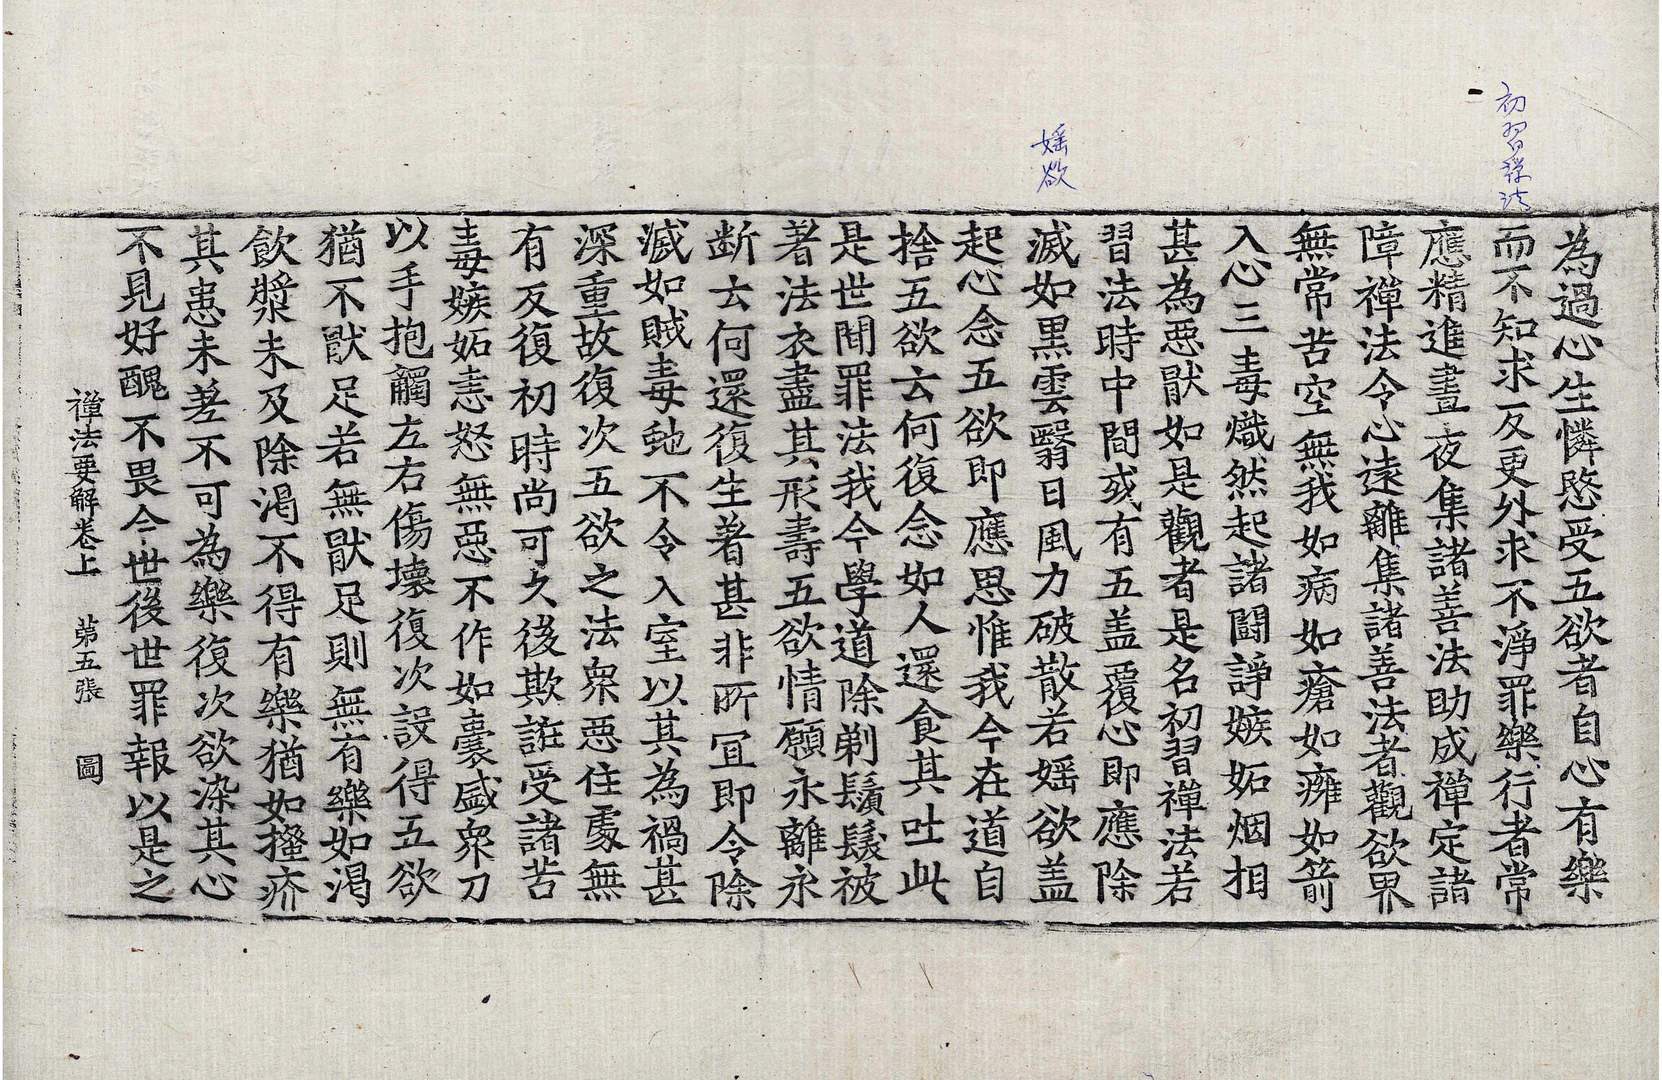 初習禪法
婬欲
為過心生憐愍受五欲者自心有樂
而不知求反更外求不淨罪樂行者常
應精進晝夜集諸善法助成禪定諸
障禪法令心遠離集諸善法者觀欲界
無常苦空無我如病如瘡如癰如箭
入心三毒熾然起諸鬪諍嫉妬烟相
甚為惡猒如是觀者是名初習禪法若
習法時中間或有五盖覆心即應除
滅如黑雲翳日風力破散若婬欲盖
起心念五欲即應思惟我今在道自
捨五欲云何復念如人還食其吐此
是世間罪法我今學道除剃鬚髮被
著法衣盡其形壽五欲情願永離永
斷云何還復生著甚非所冝即令除
滅如賊毒虵不令入室以其為禍甚
深重故復次五欲之法衆惡住處無
有反復初時尚可久後欺誑受諸苦
毒嫉妬恚怒無惡不作如囊盛衆刀
以手抱觸左右傷壞復次設得五欲
猶不猒足若無猒足則無有樂如渴
飲漿未及除渴不得有樂猶如㨶疥
其患未差不可為樂復次欲染其心
不見好醜不畏今世後世罪報以是之
禪法要解卷上 苐五張 圖